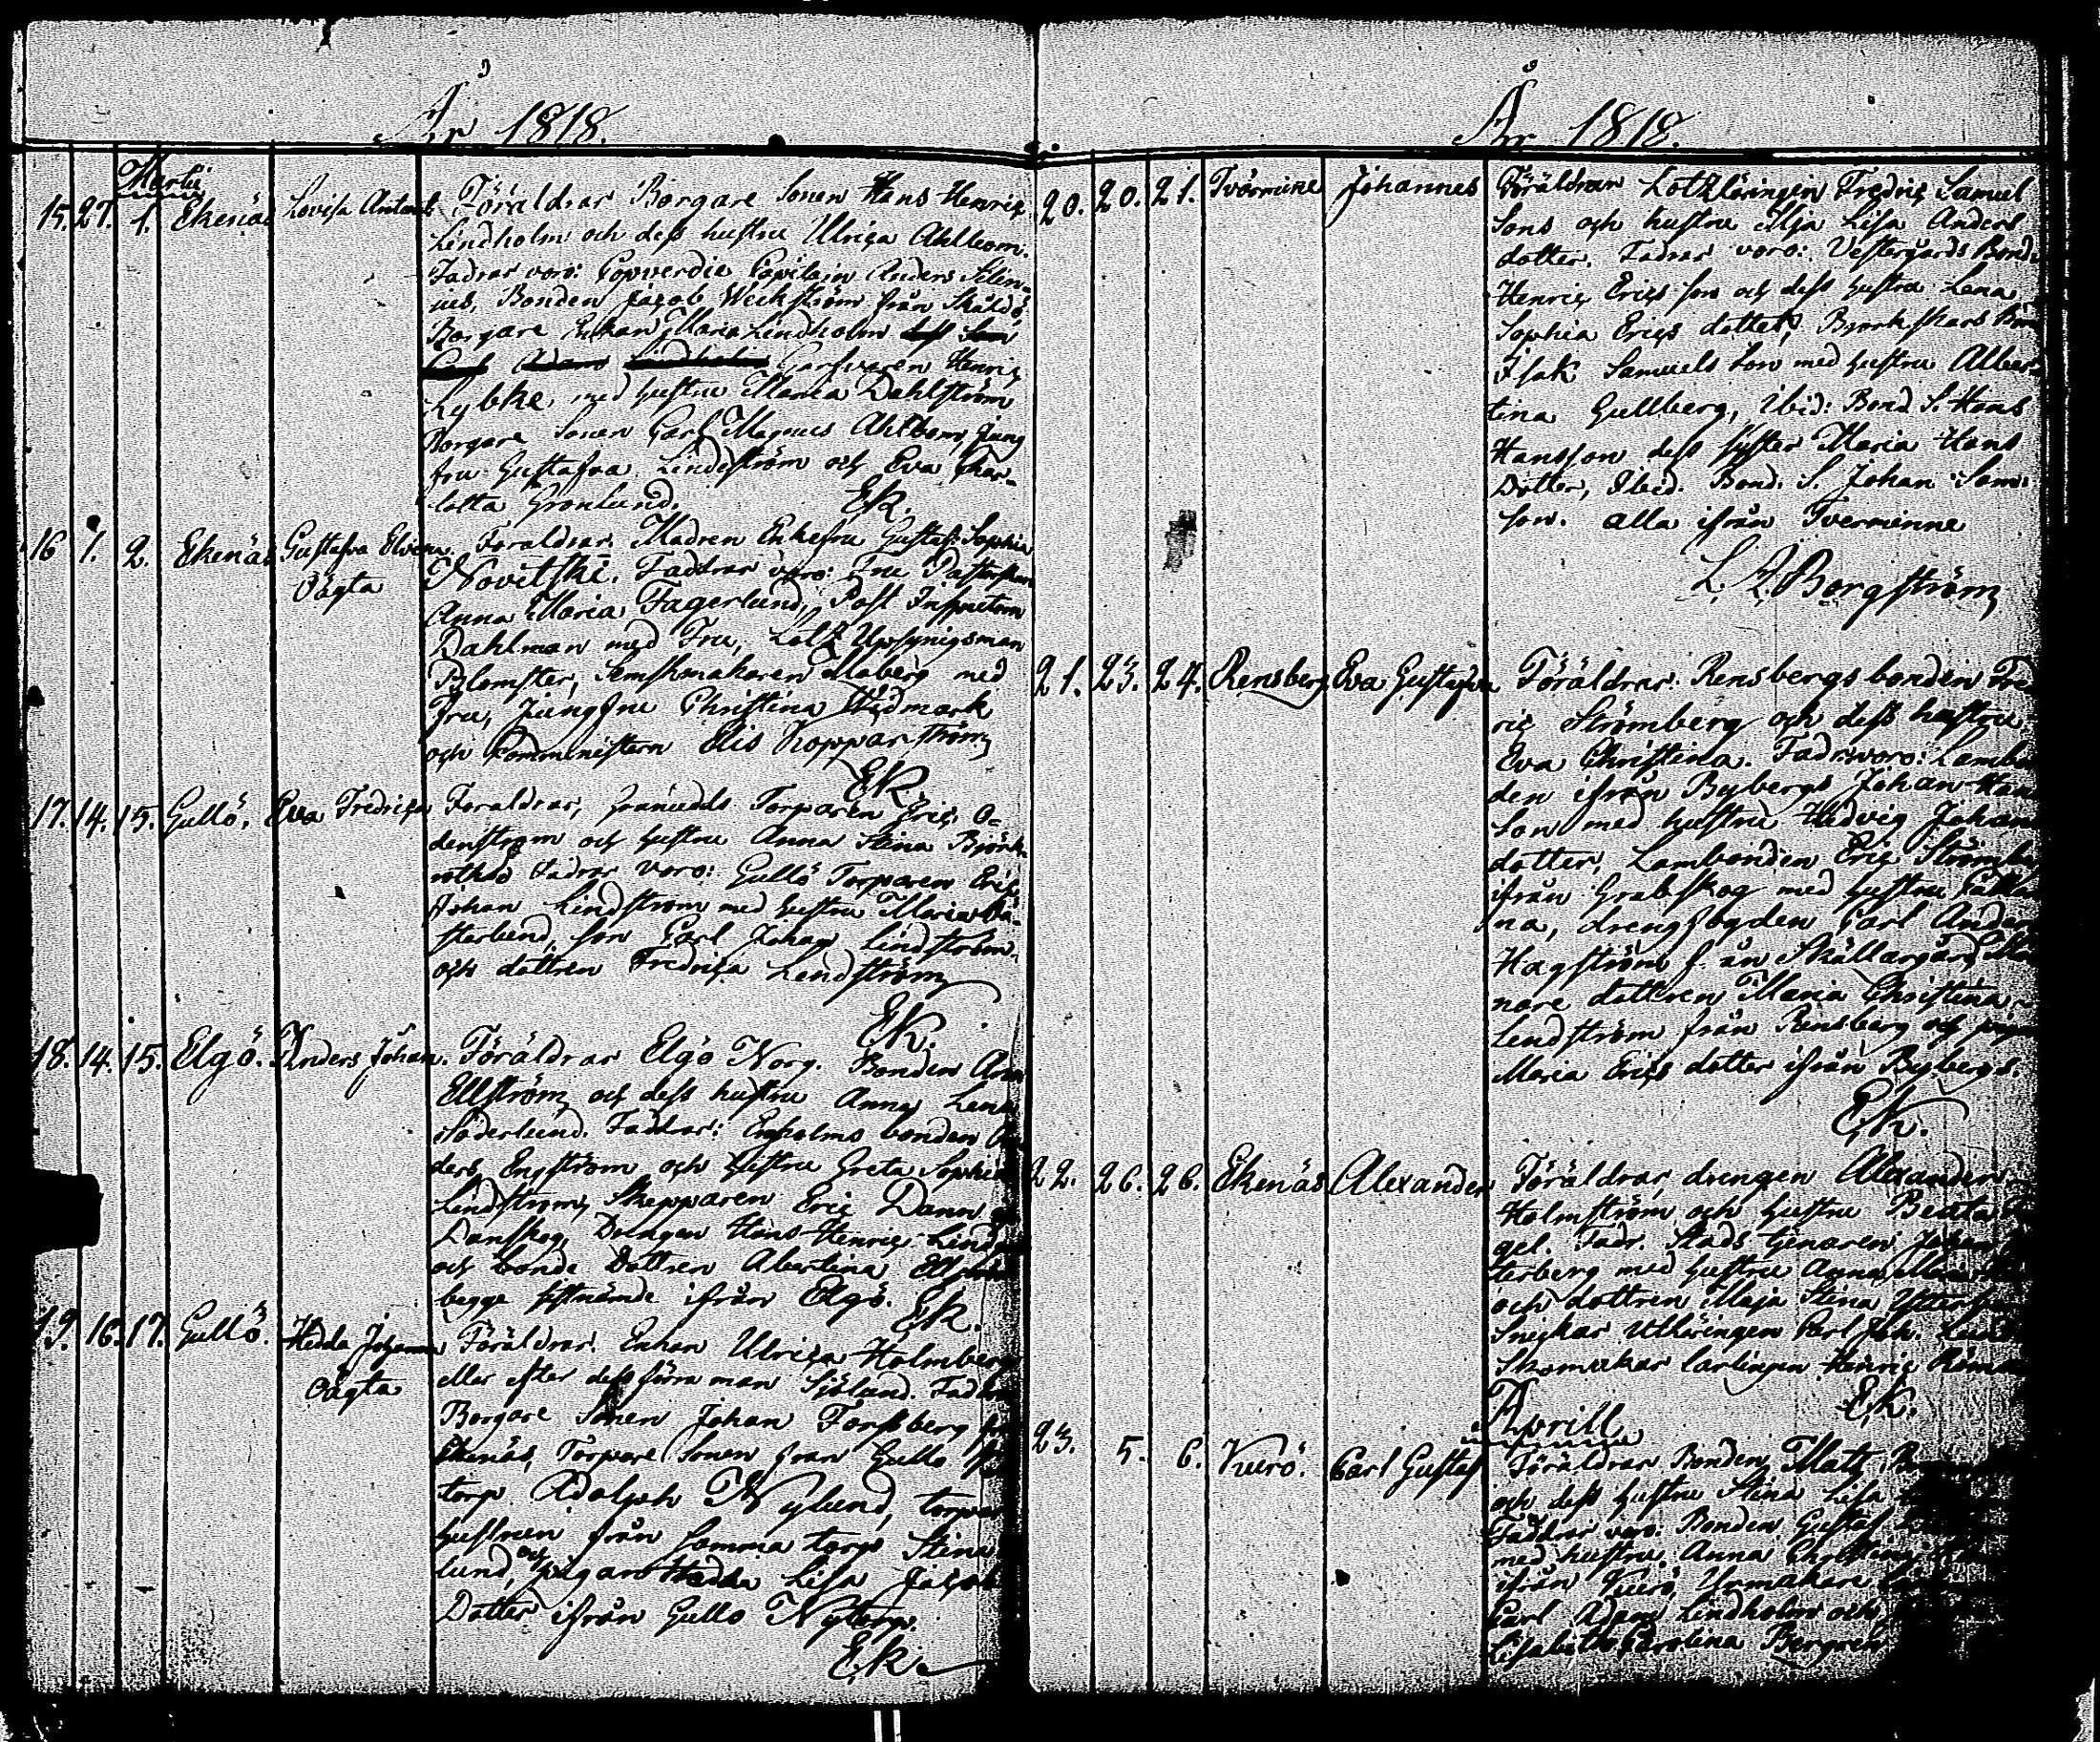 År 1818.
Martii
15. 27. 1. Ekenäs Lovisa Antoinet Föräldrar Borgare Sonen Hans Henric
Lindholm och dess hustru Ulrica Ahlbom.
Fadrar voro: Copverdie Capitain Anders
Bonden Jacob Weckström från Skåldö
Borgare Enkan Maria Lindholm
Garfvaren Henric
Lybke, med hustru Maria Dahlström
Borgare Sonen Carl Magnus Ahlbom, Jung
fru Gustafva Lindström och Eva Char-
lotta Grönlund. Ek.
16 1. 2. Ekenäs Gustafva Elvena Föräldrar. Madren Enkefru Gustaf: Sophia
Oägta Novitski. Faddrar voro: Fru
Anna Maria Fagerlund, Post Inspectorn
Dahlman med Fru, Lots Upsynigsman
Blomster, Semskmakaren Moberg med
Fru, Jungfru Christina Widmark
och Komministern Elis Kopparström
Ek
17. 14. 15. Gullö. Eva Fredrica Föräldrar, Torparen Eric O-
denstrom och hustru Anna Stina Björk
Fadrar voro: Gullö Torparen Eric
Johan Lindström med hustru Maria Sö-
sterlund, son Carl Johan Lindström.
och dottren Fredrica Lindström
Ek.
18. 14. 15. Elgö. Anders Johan. Föräldrar Elgö Norg. Bonden
Ellström och dess hustru Anna Lena
Söderlund. Faddrar: bonden An
ders Engström och hustru Greta Sophia
Lindström, Skepparen Eric Dann
Danskog, Drengen Hans Henric Lind
och bonde Dottren Albertina
begge sistnämde ifrån Elgö. Ek.
19. 16. 17. Gullö. Hedda Johanna Föräldrar. Enkan Ulrica Holmberg
Oägta eller efter dess förra man Sjölund. Fad
Borgare Sonen Johan Forssberg
Ekenäs, Torpare Sonen från Gullö
torp Adolph Nylund, torpar
hustruen från samma torp Stina
lund, och pigan Hedda Lisa Jacobs
Dotter ifrån Gullö Nytorp.
Ek.
År 1818.
20. 20. 21. Tvärminne Johannes Föräldrar Lotslärlingen Fredric Samuel
Sons och hustru Maja Lisa Anders
dotter. Fadrar voro: Vestergårds Bond
Henric Erics son och dess hustru Lena
Sophia Erics dotter, Björkskärs
Isak Samuels son med hustru Alber-
tina Gullberg, Ibid: Bond S. Hans
Hansson dess syster Maria Hans
Dotter, Ibid. Bond. S. Johan Sam:
son. alla ifrån Tverminne
L. A. Borgström
21. 23. 24. Rensberg Eva Gustafva Föräldrar. Rensbergs bonden Fre
ric Strömberg och dess hustru
Eva Christina. Fadr: voro: Lambo
den ifrån Bybergs Johan Han
Son med hustru Hedvig Johans
dotter, Lambonden Eric Strömb
ifrån Grabskog med hustru
na, drengfogden Carl Anders
Hagström från Skällargård,
nare dottren Maria Christina
Lindström från Rensberg och pigan
Maria Erics dotter ifrån Bybergs.
Ek.
22. 26. 26. Ekenäs Alexander Föräldrar, drengen Alexander
Holmström och hustru Beata
gel. Fadr. Stads tjenaren Johan
terberg med hustru Anna
och dottren Maja Stina
Snickar Utläringen Carl Joh. Lind
Skomakar larlingen Henric
Ek.
Aprill
23. 5. 6. Vuerö. Carl Gustaf Föräldrar Bonden Matz
och dess hustru Stina Lisa
Faddrar voro. Bonden Gustaf
med hustru Anna Christina
ifrån Vuerö, Urmakare
Carl Adam Lindholm och
Lisabeth Carolina Bergren